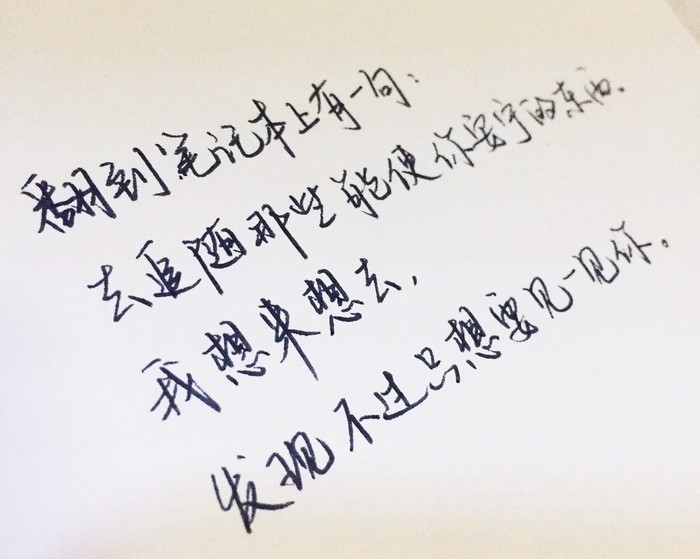 翻到笔记本上有一句：
去追随那些能使你安宁的东西.
我想来想去，
发现不过只想要见一见你。